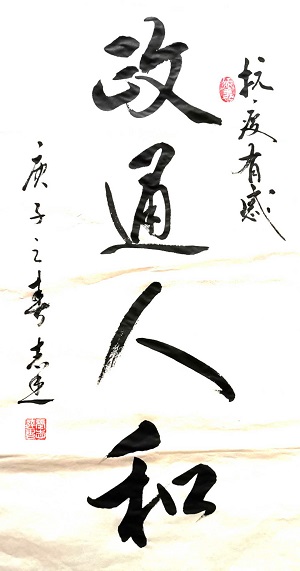 抗疫有感
政通人和
庚子之春志建